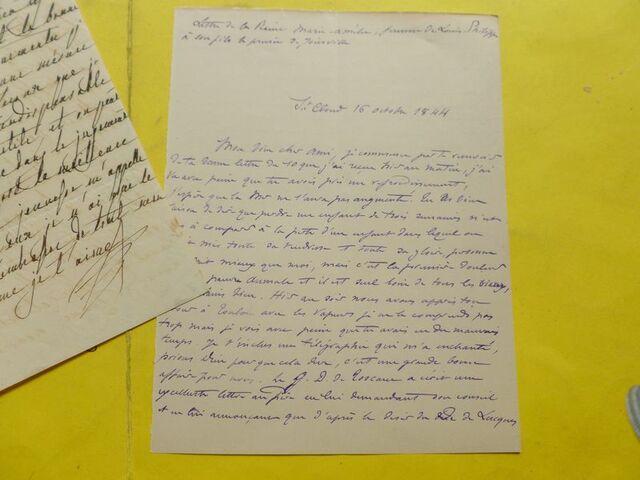 la bonne
pour mesure
que je
indispensable
et on peut
dans le jugement
la meilleure
jeunesse m'appelle
je n'ai que le
de tout mon
je t'aime
Lettre de la Reine Marie-amélie, femme de Louis Philippe
à son fils le prince de Joinville
St Cloud 16 octobre 1844
Mon bien cher ami, je commence par te remercier
de ta bonne lettre du 10 que j'ai reçue hier au matin, j'ai
vu avec peine que tu avois pris un refroidissement,
j'espère que la mer ne l'aura pas augmenté. Tu as bien
raison de dire que perdre un enfant de trois semaines n'est
à comparer à la perte d'un enfant dans lequel on
mis toute sa tendresse et toute sa gloire, personne
mieux que moi, mais c'est la première douleur
pauvre d'aumale et il est seul loin de tous les siens,
bien. Hier au soir nous avons appris ton
à Toulon avec les vapeurs je ne le comprends pas
trop mais je vois avec peine que tu avais eu du mauvais
temps. Je t'inclus une télégraphie qui m'a enchanté,
prions Dieu pour que cela dure, c'est une grande bonne
affaire pour nous. Le G. D. de Toscane a écrit une
excellente lettre au père en lui demandant son conseil
et en lui annonçant que d'après le désir du Duc de Lucques